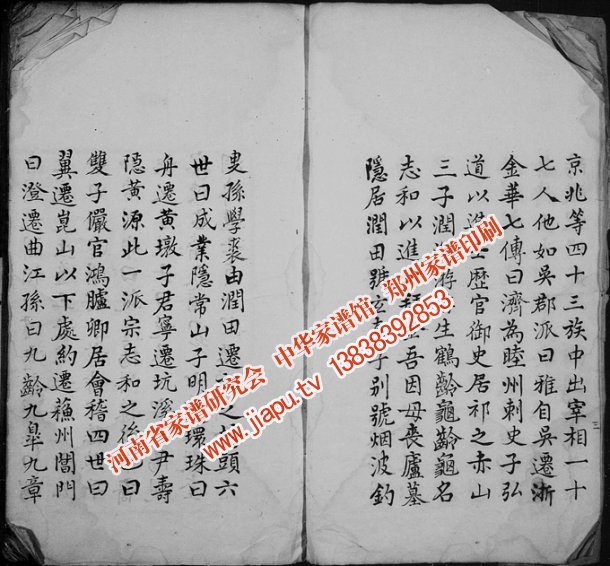 京兆等四十三族中出宰相一十
七人他如吳郡派曰雅自吳遷浙
金華七傳曰濟為睦州刺史子弘
道以進士歷官御史居祁之赤山
三子潤 游 生鶴齡龜齡龜名
志和以進 吾因母喪廬墓
隱居潤田號玄真子別號烟波釣
叟孫學裘由潤田遷 之 頭六
世曰成業隱常山子明 環珠曰
舟遷黃墩子君寧遷坑溪 尹壽
隱黃源此一派宗志和之後 曰
雙子儼官鴻臚卿居會稽四世曰
翼遷崑山以下處約遷蘓州閶門
曰澄遷曲江孫曰九齡九臯九章
三
河南省家谱研究会 中华家谱馆 郑州家谱印刷
www.jiapu.tv 13838392853